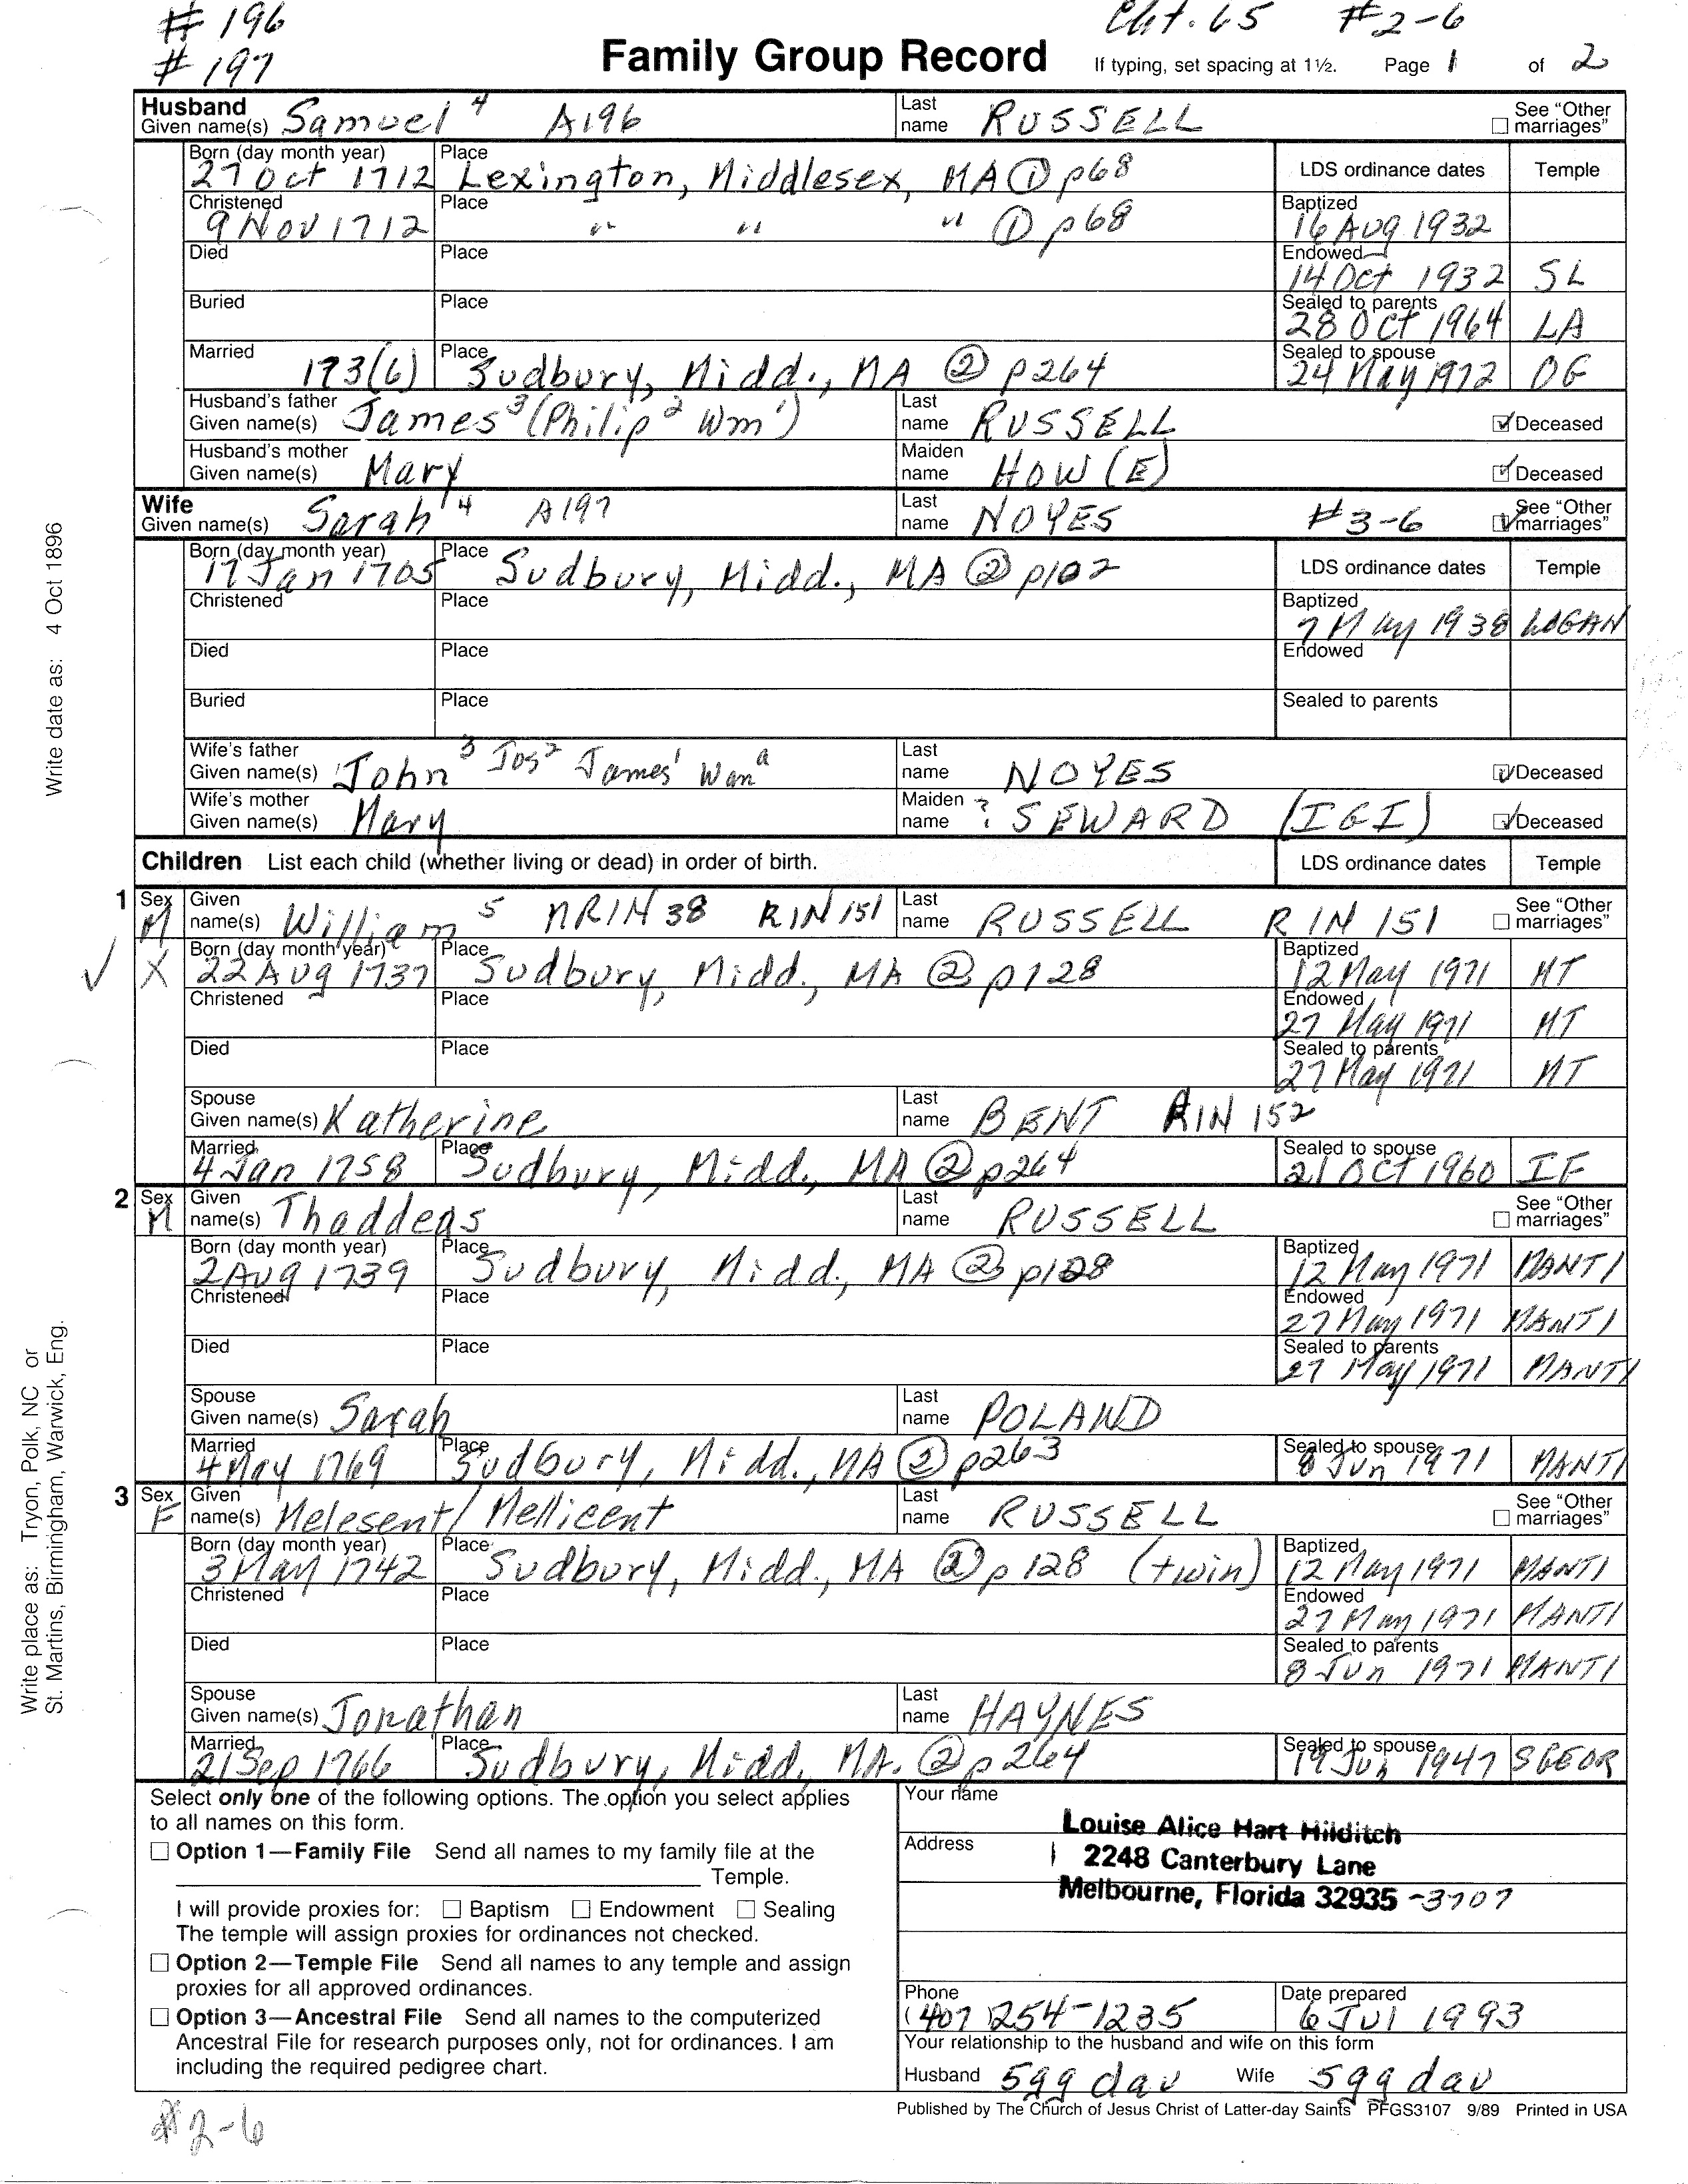 # 196 Cht. 65 #2-6
# 197 Family Group Record If typing, set spacing at 1½. Page 1 of 2
Husband
Given name(s) Samuel 4 A196 Last name RUSSELL See "Other marriages"
Born (day month year) Place
27 Oct 1712 Lexington, Middlesex, MA ① p68 LDS ordinance dates Temple
Christened Place Baptized
9 Nov 1712 " " " ① p68 16 Aug 1932
Died Place Endowed
14 Oct 1932 SL
Buried Place Sealed to parents
28 Oct 1964 LA
Married Place Sealed to spouse
173(6) Sudbury, Midd., MA ② p264 24 May 1972 OG
Husband's father
Given name(s) James 3 (Philip 2 Wm 1) Last name RUSSELL Deceased
Husband's mother
Given name(s) Mary Maiden name HOW (E) Deceased
Wife
Given name(s) Sarah 4 A197 Last name NOYES #3-6 See "Other marriages"
Born (day month year) Place
17 Jan 1705 Sudbury, Midd., MA ② p102 LDS ordinance dates Temple
Christened Place Baptized
7 May 1938 LOGAN
Died Place Endowed
Buried Place Sealed to parents
Wife's father
Given name(s) John 3 Jos 2 James 1 Wm a Last name NOYES Deceased
Wife's mother
Given name(s) Mary Maiden name ? SEWARD (IGI) Deceased
Children List each child (whether living or dead) in order of birth. LDS ordinance dates Temple
1 Sex M Given name(s) William 5 MRIN 38 RIN 151 Last name RUSSELL RIN 151 See "Other marriages"
Born (day month year) Place Baptized
✓ X 22 Aug 1737 Sudbury, Midd., MA ② p128 12 May 1971 MT
Christened Place Endowed
27 May 1971 MT
Died Place Sealed to parents
27 May 1971 MT
Spouse
Given name(s) Katherine Last name BENT RIN 152
Married Place Sealed to spouse
4 Jan 1758 Sudbury, Midd., MA ② p264 21 Oct 1960 IF
2 Sex M Given name(s) Thaddeas Last name RUSSELL See "Other marriages"
Born (day month year) Place Baptized
2 Aug 1739 Sudbury, Midd., MA ② p128 12 May 1971 MANTI
Christened Place Endowed
27 May 1971 MANTI
Died Place Sealed to parents
27 May 1971 MANTI
Spouse
Given name(s) Sarah Last name POLAND
Married Place Sealed to spouse
4 May 1769 Sudbury, Midd., MA ② p263 8 Jun 1971 MANTI
3 Sex F Given name(s) Melesent / Mellicent Last name RUSSELL See "Other marriages"
Born (day month year) Place Baptized
3 May 1742 Sudbury, Midd., MA ② p128 (twin) 12 May 1971 MANTI
Christened Place Endowed
27 May 1971 MANTI
Died Place Sealed to parents
8 Jun 1971 MANTI
Spouse
Given name(s) Jonathan Last name HAYNES
Married Place Sealed to spouse
21 Sep 1766 Sudbury, Midd, MA. ② p264 19 Jun 1947 SGEOR
Select only one of the following options. The option you select applies
to all names on this form.
Option 1—Family File Send all names to my family file at the
Temple.
I will provide proxies for: Baptism Endowment Sealing
The temple will assign proxies for ordinances not checked.
Option 2—Temple File Send all names to any temple and assign
proxies for all approved ordinances.
Option 3—Ancestral File Send all names to the computerized
Ancestral File for research purposes only, not for ordinances. I am
including the required pedigree chart.
Your name
Louise Alice Hart Hilditch
Address
2248 Canterbury Lane
Melbourne, Florida 32935 -3707
Phone Date prepared
(407) 254-1235 6 Jul 1993
Your relationship to the husband and wife on this form
Husband 5gg dau Wife 5gg dau
Published by The Church of Jesus Christ of Latter-day Saints PFGS3107 9/89 Printed in USA
#2-6
Write date as: 4 Oct 1896
Write place as: Tryon, Polk, NC or
St. Martins, Birmingham, Warwick, Eng.